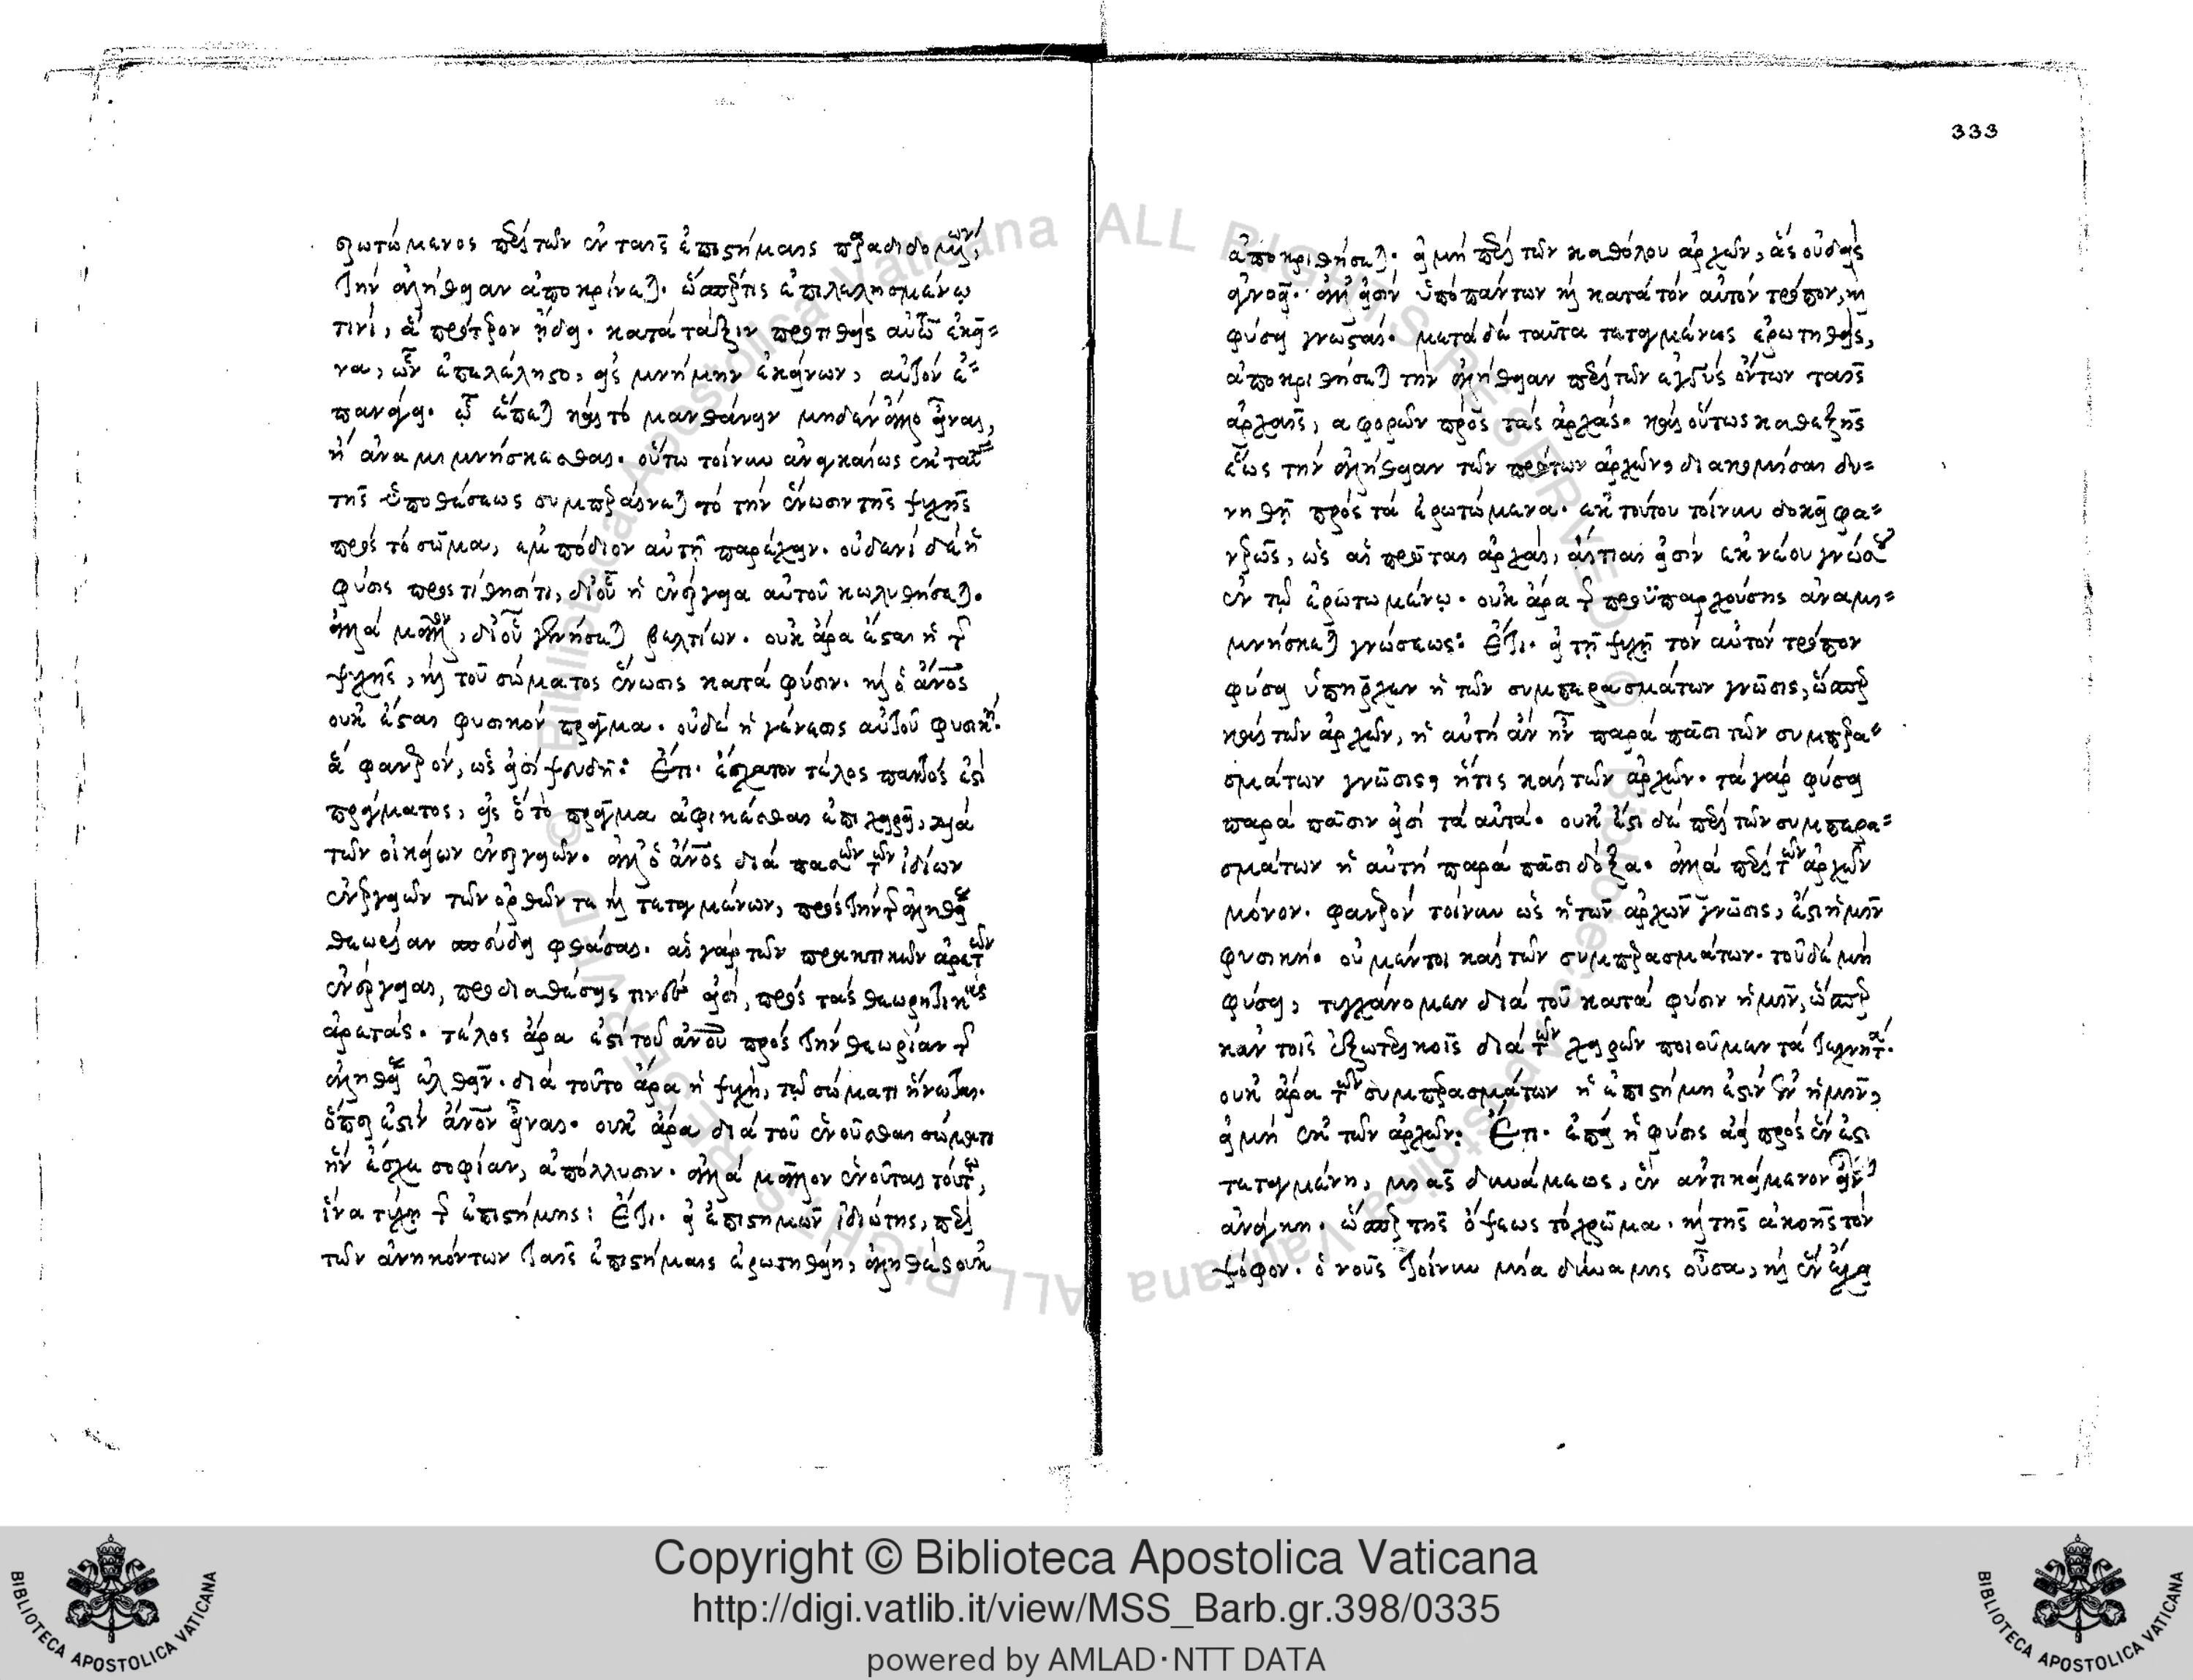 ρωτώμενος περὶ τῶν ἐν ταῖς ἐπιστήμαις παραδιδομένων,
τὴν ἀλήθειαν ἀποκρίνεται. ὥσπερ τις ἐπιλελησμένῳ
τινί, ἃ πρότερον ᾔδει. κατὰ τάξιν προτιθεὶς αὐτῷ ἐκεῖ=
να, ὧν ἐπελέληστο, εἰς μνήμην ἐκείνων, αὐτὸν ἐ=
πανάγει. ᾧ ἕπεται καὶ τὸ μανθάνειν μηδὲν ἄλλο εἶναι,
ἢ ἀναμιμνήσκεσθαι. οὕτω τοίνυν ἀναγκαίως ἐκ ταύ
της ὑποθέσεως συμπεραίνεται τὸ τὴν ἕνωσιν τῆς ψυχῆς
πρὸς τὸ σῶμα, ἐμπόδιον αὐτῇ παρέχειν. οὐδενὶ δὲ ἡ
φύσις προστίθησί τι, δι' οὗ ἡ ἐνέργεια αὐτοῦ κωλυθήσεται.
ἀλλὰ μᾶλλον, δι' οὗ γενήσεται βελτίων. οὐκ ἄρα ἔσται ἡ τῆς
ψυχῆς, καὶ τοῦ σώματος ἕνωσις κατὰ φύσιν. καὶ ὁ ἄνος
οὐκ ἔσται φυσικὸν πρᾶγμα. οὐδὲ ἡ γένεσις αὐτοῦ φυσική.
ἃ φανερόν, ὡς εἰσὶ ψευδῆ: Ἔτι. ἔσχατον τέλος παντός ἐστι
πράγματος, εἰς ὅ τὸ πρᾶγμα ἀφικέσθαι ἐπιχειρεῖ, διὰ
τῶν οἰκείων ἐνεργειῶν. ἀλλ' ὁ ἄνος διὰ πασῶν τῶν ἰδίων
ἐνεργειῶν τῶν ὀρθῶν τε καὶ τεταγμένων, πρὸς τὴν τῆς ἀληθείας
θεωρίαν σπεύδει φθάσαι. αἱ γὰρ τῶν πρακτικῶν ἀρετῶν
ἐνέργειαι, προδιαθέσεις τινές εἰσι, πρὸς τὰς θεωρητικὰς
ἀρετάς. τέλος ἄρα ἐστὶ τοῦ ἀνου πρὸς τὴν θεωρίαν τῆς
ἀληθείας ἐλθεῖν. διὰ τοῦτο ἄρα ἡ ψυχή, τῷ σώματι ἥνωται.
ὅπερ ἐστὶν ἄνον εἶναι. οὐκ ἄρα διὰ τοῦ ἑνοῦσθαι σώματι
ἣν ἔσχε σοφίαν, ἀπόλλυσιν. ἀλλὰ μᾶλλον ἑνοῦται τούτῳ,
ἵνα τύχῃ τῆς ἐπιστήμης: Ἔτι. εἰ ἐπιστημῶν ἰδιώτης, περὶ
τῶν ἀνηκόντων ταῖς ἐπιστήμαις ἐρωτηθείη, ἀληθὲς οὐκ
333
ἀποκριθήσεται. εἰ μὴ περὶ τῶν καθόλου ἀρχῶν, ἃς οὐδεὶς
ἀγνοεῖ. ἀλλ' εἰσὶν ὑπὸ πάντων καὶ κατὰ τὸν αὐτὸν τρόπον, καὶ
φύσει γνωσταί. μετὰ δὲ ταῦτα τεταγμένως ἐρωτηθείς,
ἀποκριθήσεται τὴν ἀλήθειαν περὶ τῶν ἐγγὺς ὄντων ταῖς
ἀρχαῖς, ἀφορῶν πρὸς τὰς ἀρχάς. καὶ οὕτως καθεξῆς
ἕως τὴν ἀλήθειαν τῶν πρώτων ἀρχῶν, διακομίσαι δυ=
νηθῇ πρὸς τὰ ἐρωτώμενα. ἐκ τούτου τοίνυν δοκεῖ φα=
νερῶς, ὡς αἱ πρῶται ἀρχαί, αἴτιαί εἰσιν ἐκ νέου γνώσεως
ἐν τῷ ἐρωτωμένῳ. οὐκ ἄρα τῆς προϋπαρχούσης ἀναμι=
μνήσκεται γνώσεως: Ἔτι. εἰ τῇ ψυχῇ τὸν αὐτὸν τρόπον
φύσει ὑπῆρχεν ἡ τῶν συμπερασμάτων γνῶσις, ὥσπερ
καὶ τῶν ἀρχῶν, ἡ αὐτὴ ἂν ἦν παρὰ πᾶσι τῶν συμπερα=
σμάτων γνῶσις, ἥτις καὶ τῶν ἀρχῶν. τὰ γὰρ φύσει
παρὰ πᾶσιν εἰσὶ τὰ αὐτά. οὐκ ἔστι δὲ περὶ τῶν συμπερα=
σμάτων ἡ αὐτὴ παρὰ πᾶσι δόξα. ἀλλὰ περὶ τῶν ἀρχῶν
μόνον. φανερὸν τοίνυν ὡς ἡ τῶν ἀρχῶν γνῶσις, ἐστὶν ἡμῖν
φυσική. οὐ μέντοι καὶ τῶν συμπερασμάτων. τοῦ δὲ μὴ
φύσει, τυγχάνομεν διὰ τοῦ κατὰ φύσιν ἡμῖν, ὥσπερ
κἂν τοῖς ἐξωτερικοῖς διὰ τῶν χειρῶν ποιοῦμεν τὰ τεχνητά.
οὐκ ἄρα τῶν συμπερασμάτων ἡ ἐπιστήμη ἐστὶν ἐν ἡμῖν,
εἰ μὴ ἐκ τῶν ἀρχῶν: Ἔτι. ἐπεὶ ἡ φύσις ἀεὶ πρὸς ἕν ἐστι
τεταγμένη, μιᾶς δυνάμεως, ἓν ἀντικείμενον εἶναι
ἀνάγκη. ὥσπερ τῆς ὄψεως τὸ χρῶμα. καὶ τῆς ἀκοῆς τὸν
ψόφον. ὁ νοῦς τοίνυν μία δύναμις οὖσα, καὶ ἓν ἔχει
Copyright © Biblioteca Apostolica Vaticana
http://digi.vatlib.it/view/MSS_Barb.gr.398/0335
powered by AMLAD·NTT DATA
BIBLIOTECA APOSTOLICA VATICANA
BIBLIOTECA APOSTOLICA VATICANA